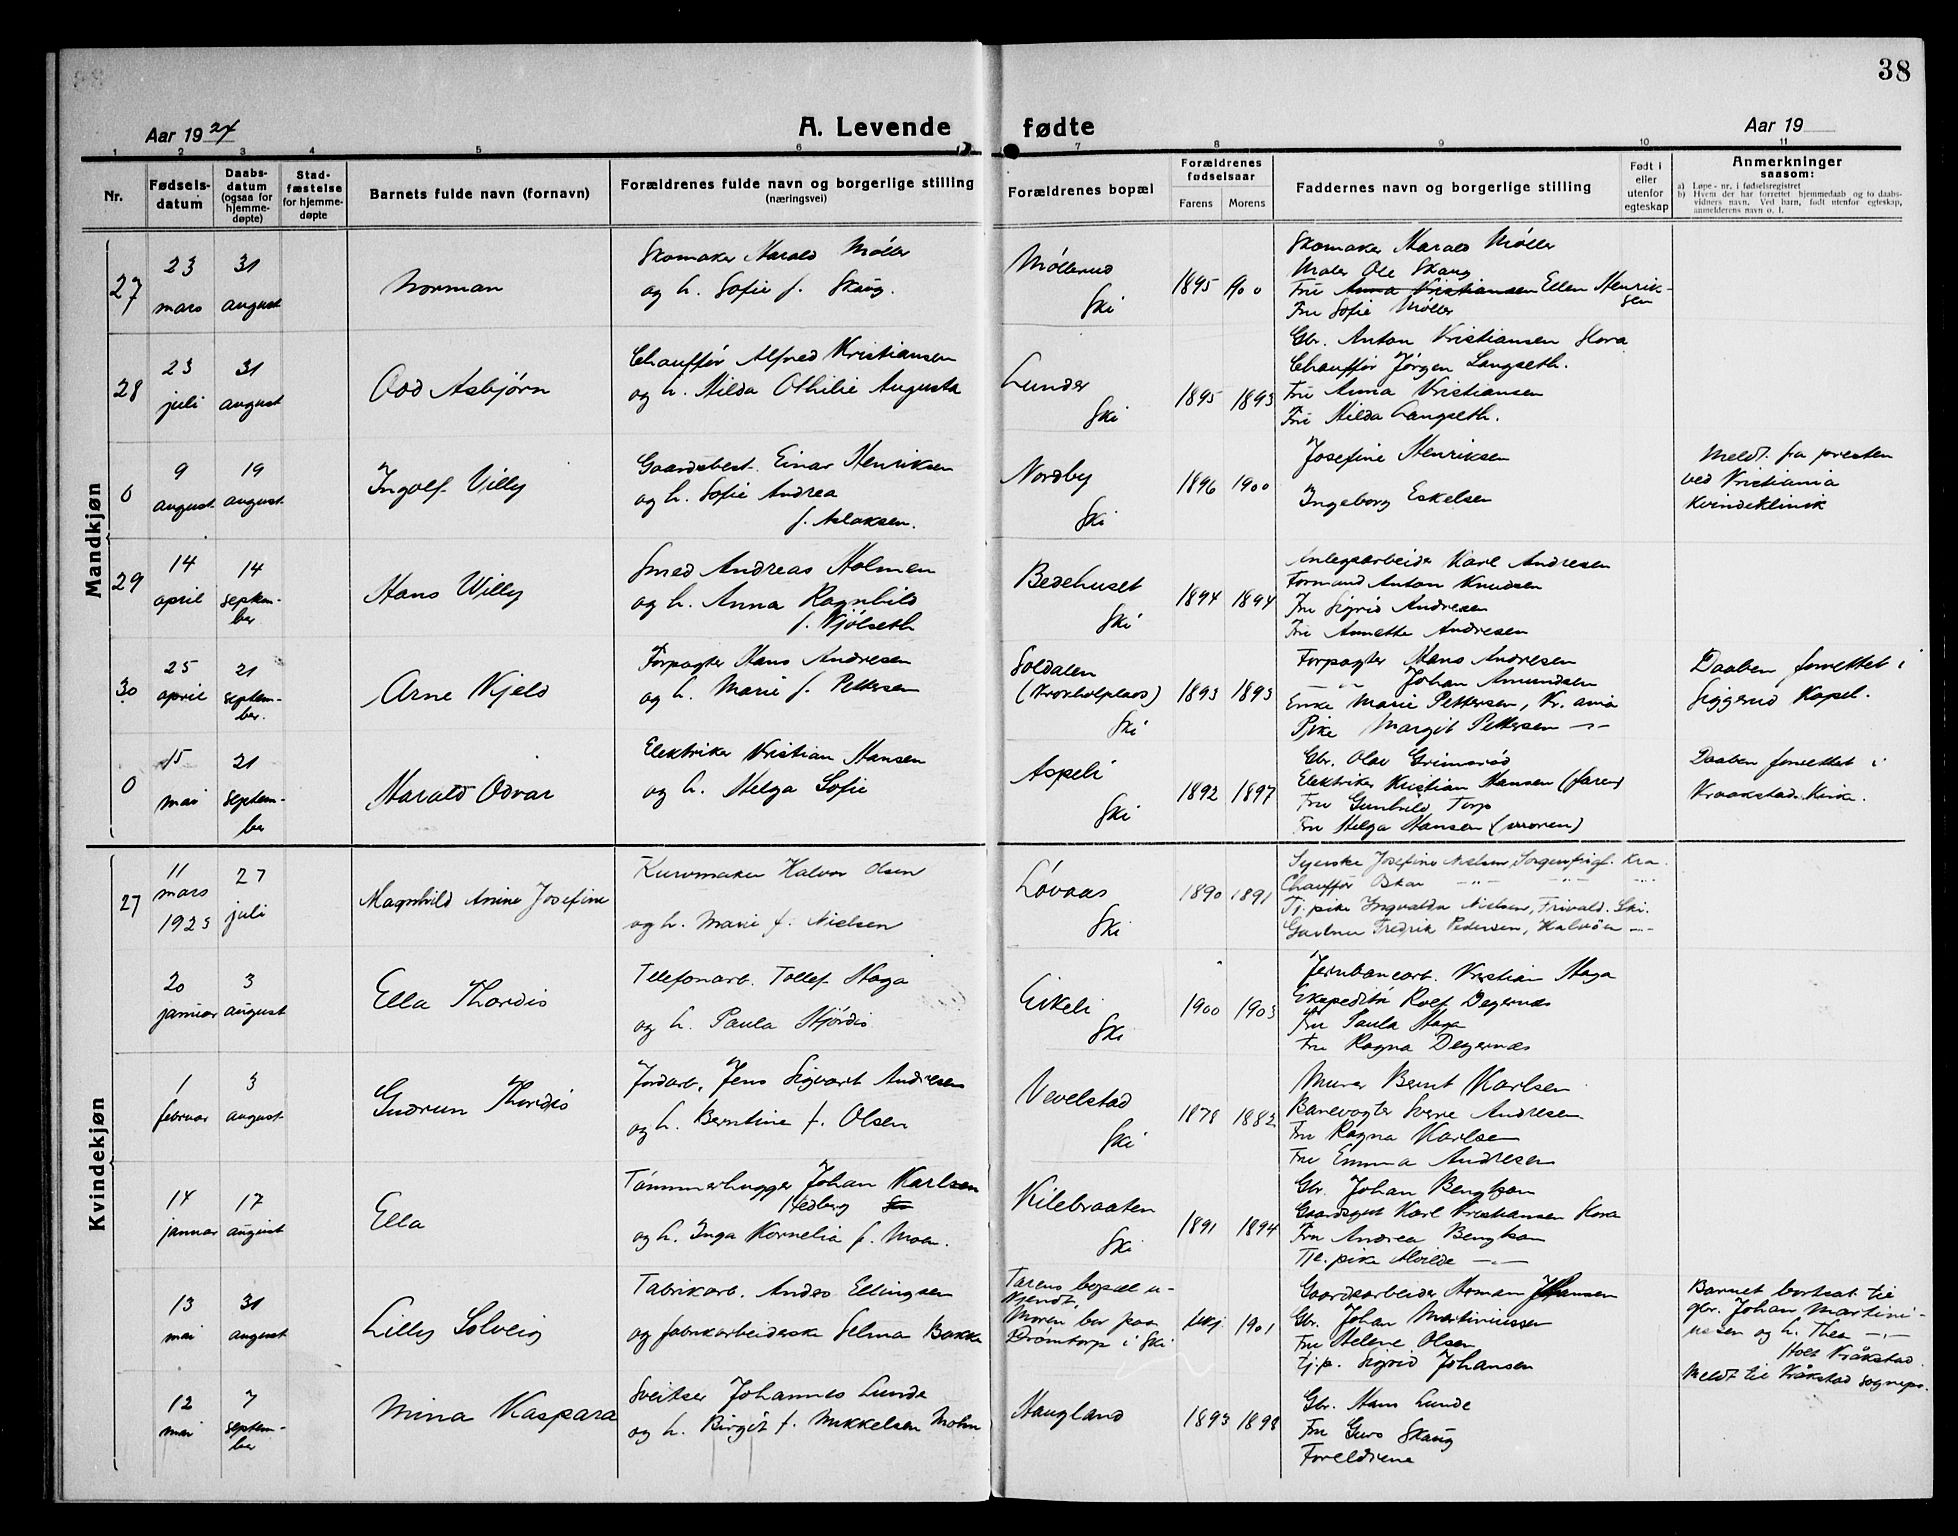 38
Aar 1924
A. Levende fødte
Aar 19
1 2 3 4 5 6 7 8 9 10 11
Nr.
Fødsels-
datum
Daabs-
datum
(ogsaa for
hjemme-
døpte)
Stad-
fæstelse
for hjemme-
døpte
Barnets fulde navn (fornavn)
Forældrenes fulde navn og borgerlige stilling
(næringsvei)
Forældrenes bopæl
Forældrenes
fødselsaar
Farens Morens
Faddernes navn og borgerlige stilling
Født i
eller
utenfor
egteskap
Anmerkninger
saasom:
a) Løpe-nr. i fødselsregistret
b) Hvem der har forrettet hjemmedaab og to daabs-
vidners navn. Ved barn, født utenfor egteskap,
anmelderens navn o. l.
Mandkjøn
27
23
mars
31
august
Norman
Skomaker Harald Møller
og h. Sofie f. Skaug.
Møllerud
Ski
1895 1900
Skomaker Harald Møller
Maler Ole Skaug
Fru Anna Kristiansen Ellen Henrik-
sen
Fru Sofie Møller
28
23
juli
31
august
Odd Asbjørn
Chauffør Alfred Kristiansen
og h. Hilda Othilie Augusta
Lunder
Ski
1895 1893
Gbr. Anton Kristiansen Hora
Chauffør Jørgen Langseth.
Fru Anna Kristiansen
Fru Hilda Langseth.
0
9
august
19
august
Ingolf Villy
Gaardsbest. Einar Henriksen
og h. Sofie Andrea
f. Aslaksen.
Nordby
Ski
1896 1900
Josefine Henriksen
Ingeborg Eskelsen
Meldt fra presten
ved Kristiania
Kvindeklinik
29
14
april
14
septem-
ber
Hans Willy
Smed Andreas Holmen
og h. Anna Ragnhild
f. Kjølseth
Bedehuset
Ski
1894 1894
Anlegsarbeider Karl Andresen
Formand Anton Knudsen
Fru Sigrid Andresen
Fru Annette Andresen
30
25
april
21
septem-
ber.
Arne Kjeld
Forpagter Hans Andresen
og h. Marie f. Pettersen
Soldalen
(Krokholplads)
Ski
1893 1893
Forpagter Hans Andresen
—"— Johan Amundsen
Enke Marie Pettersen, Kr.ania
Pike Margit Pettersen —"—
Daaben forrettet i
Siggerud Kapel.
0
15
mai
21
septem-
ber
Harald Odvar
Elektriker Kristian Hansen
og h. Helga Sofie
Aspeli
Ski
1892 1897
Gbr. Olav Grimsrød
Elektriker Kristian Hansen (faren)
Fru Gunhild Torp
Fru Helga Hansen (moren)
Daaben forrettet i
Kraakstad Kirke.
Kvindekjøn
27
11
mars
1923
27
juli
Magnhild Anine Josefine
Kurvmaker Halvor Olsen
og h. Marie f. Nielsen
Løvaas
Ski
1890 1891
Syerske Josefine Nielsen, Sorgenfrigt. Kra.
Chauffør Oskar —"— —"— —"—
Tj. pike Ingvalda Nielsen, Frivald. Ski.
Gartner Fredrik Pedersen, Halvöen —"—
20
januar
3
august
Ella Thordis
Telefonarb. Tollef Haga
og h. Paula Hjørdis
Eikeli
Ski
1900 1903
Jernbanearb. Kristian Haga
Ekspeditør Rolf Degernæs
Fru Paula Haga
Fru Ragna Degernæs
1
februar
3
august
Gudrun Thordis
Jordarb. Jens Sigvart Andresen
og h. Berntine f. Olsen
Vevelstad
Ski
1878 1882
Murer Bernt Karlsen
Banevogter Sverre Andresen
Fru Ragna Karlsen
Fru Emma Andresen
14
januar
17
august
Ella
Tømmerhugger Johan Karlsen
Hedberg
og h. Inga Kornelia f. Moen.
Kilebraaten
Ski
1891 1894
Gbr. Johan Bengtson
Gaardsgut Karl Kristiansen Hora
Fru Andrea Bengtson
Tje. pike Alvilde —"—
13
mai
31
august
Lilly Solveig
Fabrikarb. Anders Ellingsen
og fabrikarbeiderske Selma Bakke
Farens bopæl u-
kjendt,
Moren bor paa
Drømtorp i Ski
ukj 1901
Gaardsarbeider Herman Johansen
Gbr. Johan Martiniussen
Fru Helene Olsen
tj.p. Sigrid Johansen
Barnet bortsat til
gbr. Johan Martini-
ussen og h. Thea —"—
Holt Kråkstad.
Meldt til Kråkstad sognepr.
12
mai
7
septem-
ber
Mina Kaspara
Sveitser Johannes Lunde
og h. Birgit f. Mikkelsen Mohn
Haugland
1893 1898
Gbr. Hans Lunde
Fru Guro Skaug
Foreldrene